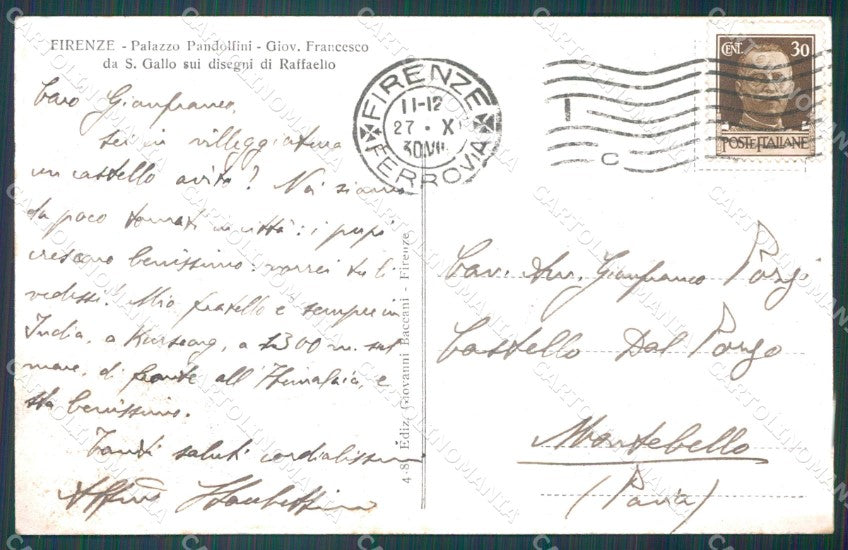 FIRENZE - Palazzo Pandolfini - Giov. Francesco
da S. Gallo sui disegni di Raffaello
Caro Gianfranco,
sei in villeggiatura
un castello avito? Noi siamo
da poco tornati in città: i pupi
crescono benissimo: vorrei tu li
vedessi! Mio fratello è sempre in
India, a Kurseong, a 2300 m. sul
mare, di fronte all'Himalaia, e
sta benissimo.
Tanti saluti cordialissimi
Aff.mo
4-85 Ediz. Giovanni Baccani - Firenze
FIRENZE
11-12
27 · X
30 VII
FERROVIA
C
CENT. 30
POSTE ITALIANE
Cav. Avv. Gianfranco
Castello Dal Pozzo
Montebello
(Pavia)
CARTOLINOMANIA